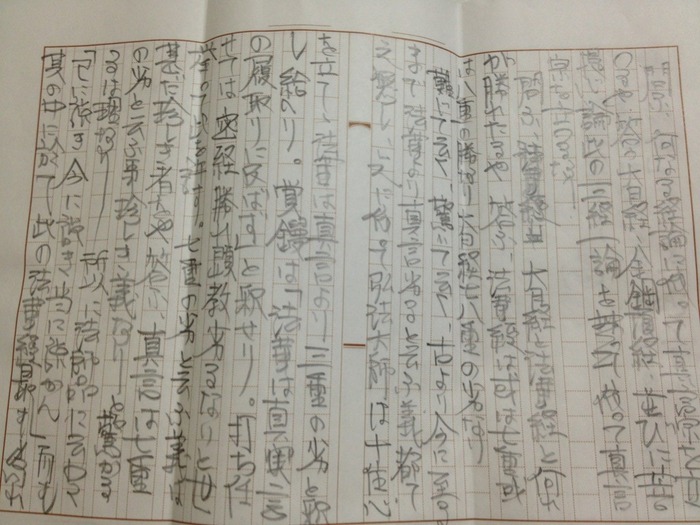 問ふ、何なる経論に依って真言宗を立
つるや、答ふ大日経、金剛頂経、並びに
此の三経一論を以って真言
宗を立つるなり
問ふ、大日経と法華経と何れ
が勝れたるや、答ふ、法華経は或は七重或
は八重の勝なり大日経は七八重の劣なり
難じて云く、驚いて云く、古より今に至る
まで法華より真言劣ると云ふ義都て
之無し、之に依って弘法大師は十住心
を立てて法華は真言より三重の劣と釈
し給へり。覚鑁は「法華は真言
の履取りに及ばず」と釈せり。打ち任
せては密経勝れ顕教劣るなりと世
挙って此を許す。七重の劣と云ふ義は
甚だ珍しき者をや答ふ、真言は七重
の劣と云ふ事珍しき義なりと驚かる
るは理なり 所以に法師品に云わく
「已に説き今に説き当に説かん而も
其の中に於て此の法華経最も